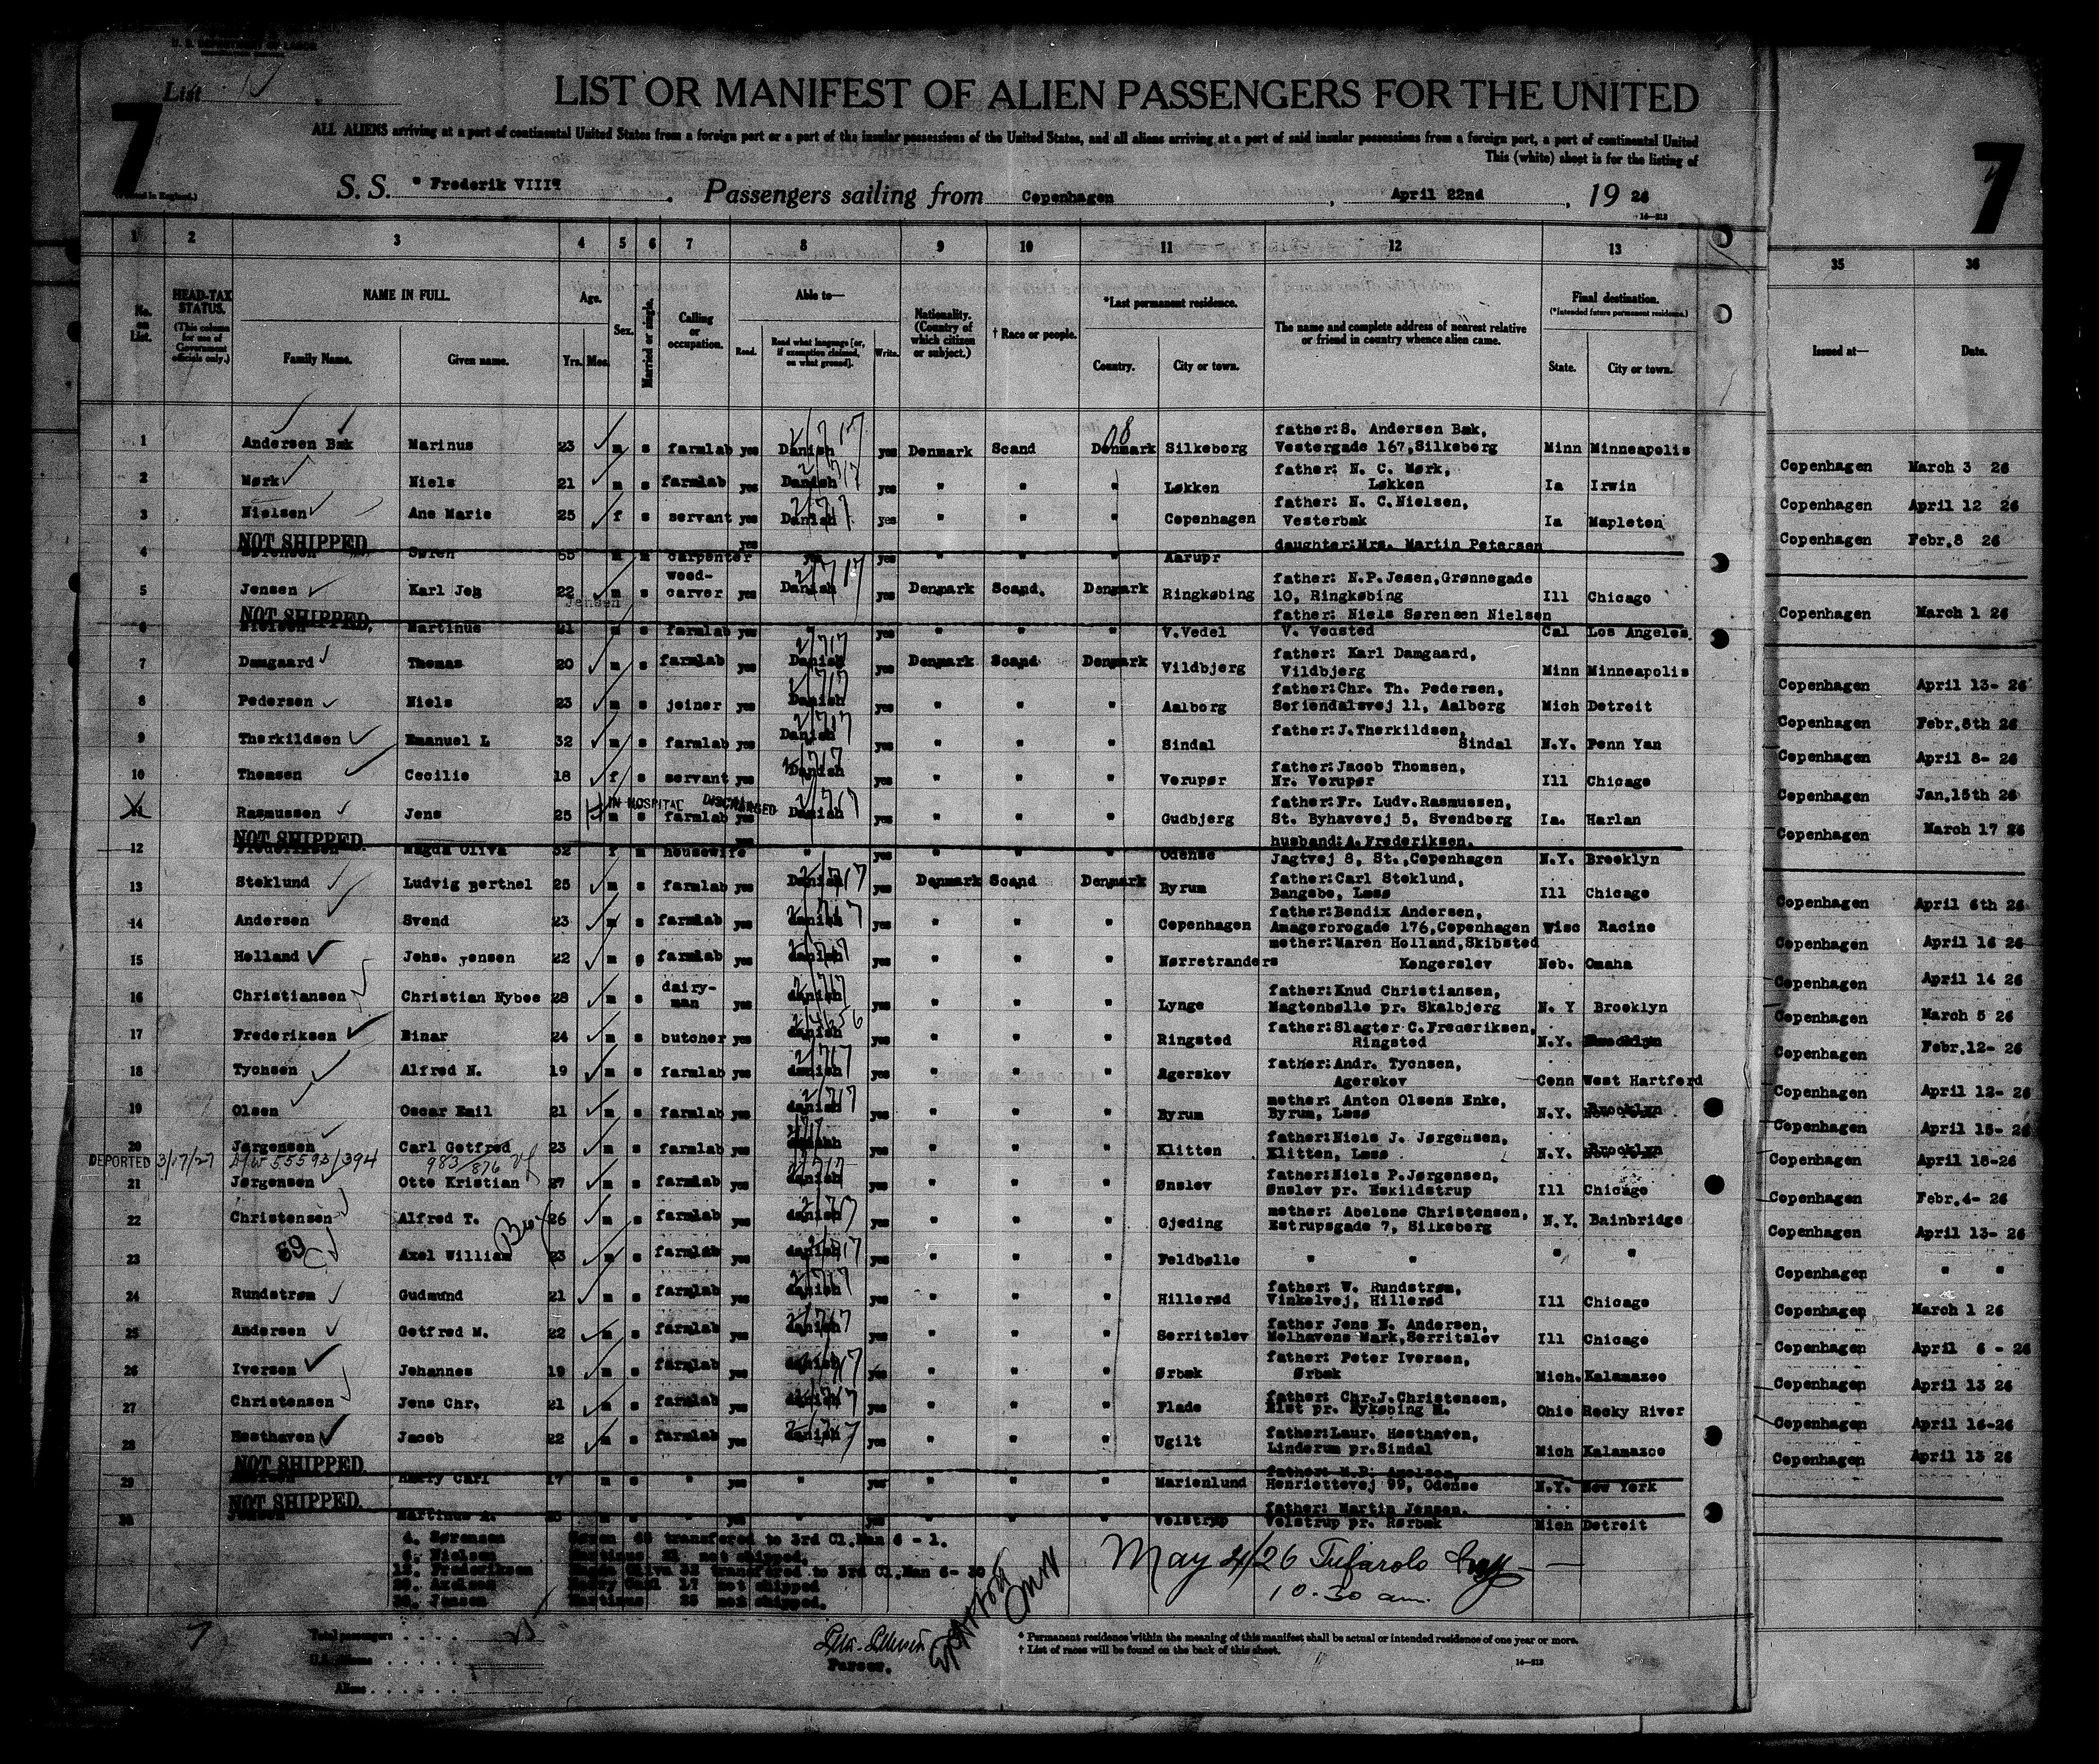 List
7
LIST OR MANIFEST OF ALIEN PASSENGERS FOR THE UNITED
ALL ALIENS arriving at a port of continental United States from a foreign port or a port of the insular possessions of the United States, and all aliens arriving at a port of said insular possessions from a foreign port, a port of continental United
This (white) sheet is for the listing of
S. S. " Frederik VIII" . Passengers sailing from Copenhagen , April 22nd , 19 26
7
1 2 3 4 5 6 7 8 9 10 11 12 13 35 36
No. on List. HEAD-TAX STATUS. (This column for use of Government officials only.) NAME IN FULL. Family Name. Given name. Age. Yrs. Mos. Sex. Married or single. Calling or occupation. Able to— Read. Read what language [or, if exemption claimed, on what ground]. Write. Nationality. (Country of which citizen or subject.) † Race or people. *Last permanent residence. Country. City or town. The name and complete address of nearest relative or friend in country whence alien came. Final destination. (*Intended future permanent residence.) State. City or town. Issued at— Date.
1 Andersen Bæk Marinus 23 m s farmlab yes Danish yes Denmark Scand Denmark Silkeborg father: S. Andersen Bæk, Vestergade 167, Silkeborg Minn Minneapolis Copenhagen March 3 26
2 Mørk Niels 21 m s farmlab yes Danish yes " " " Løkken father: N. C. Mørk, Løkken Ia Irwin Copenhagen April 12 26
3 Nielsen Ane Marie 25 f s servant yes Danish yes " " " Copenhagen father: N. C. Nielsen, Vesterbæk Ia Mapleton Copenhagen Febr. 8 26
NOT SHIPPED
4 Søren m m carpenter yes yes " " " Aarupr daughter: Mrs. Martin Petersen
5 Jensen Karl Joh 22 m s wood-carver yes Danish yes Denmark Scand. Denmark Ringkøbing father: N.P. Jesen, Grønnegade 10, Ringkøbing Ill Chicago Copenhagen March 1 26
NOT SHIPPED.
6 Nielsen Martinus 21 m s farmlab yes " yes " " " V. Vedel father: Niels Sørensen Nielsen V. Vedsted Cal Los Angeles.
7 Damgaard Thomas 20 m s farmlab yes Danish yes Denmark Scand Denmark Vildbjerg father: Karl Damgaard, Vildbjerg Minn Minneapolis Copenhagen April 13- 26
8 Pedersen Niels 23 m s joiner yes Danish yes " " " Aalborg father: Chr. Th. Pedersen, Sofiendalsvej 11, Aalborg Mich Detroit Copenhagen Febr. 8th 26
9 Therkildsen Emanuel L 32 m s farmlab yes Danish yes " " " Sindal father: J. Therkildsen, Sindal N.Y. Penn Yan Copenhagen April 8- 26
10 Thomsen Cecilie 18 f s servant yes Danish yes " " " Verupør father: Jacob Thomsen, Nr. Verupør Ill Chicago Copenhagen Jan. 15th 26
IN HOSPITAL DISCHARGED
11 Rasmussen Jens 25 m s farmlab yes Danish yes " " " Gudbjerg father: Fr. Ludv. Rasmussen, St. Byhavevej 5, Svendborg Ia. Harlan Copenhagen March 17 26
NOT SHIPPED.
12 Frederiksen Magda Oliva 32 f m housewife yes " yes " " " Odense husband: A. Frederiksen. Jagtvej 8, St., Copenhagen N.Y. Brooklyn
13 Stoklund Ludvig Berthel 25 m s farmlab yes Danish yes Denmark Scand Denmark Byrum father: Carl Stoklund, Bangsbo, Læsø Ill Chicago Copenhagen April 6th 26
14 Andersen Svend 23 m s farmlab yes danish yes " " " Copenhagen father: Bendix Andersen, Amagerbrogade 176, Copenhagen Wisc Racine Copenhagen April 16 26
15 Holland Johs. Jensen 22 m s farmlab yes danish yes " " " Nørretranders mother: Maren Holland, Skibsted Kongerslev Neb. Omaha Copenhagen April 14 26
16 Christiansen Christian Nyboe 28 m s dairy-man yes danish yes " " " Lynge father: Knud Christiansen, Magtenbølle pr. Skalbjerg N. Y Brooklyn Copenhagen March 5 26
17 Frederiksen Einar 24 m s butcher yes danish yes " " " Ringsted father: Slagter C. Frederiksen, Ringsted N.Y. Brooklyn Copenhagen Febr. 12- 26
18 Tychsen Alfred N. 19 m s farmlab yes danish yes " " " Agerskov father: Andr. Tychsen, Agerskov Conn West Hartford Copenhagen April 12- 26
19 Olsen Oscar Emil 21 m s farmlab yes danish yes " " " Byrum mother: Anton Olsens Enke, Byrum, Læsø N.Y. Brooklyn Copenhagen April 15- 26
20 Jørgensen Carl Gotfred 23 m s farmlab yes danish yes " " " Klitten father: Niels J. Jørgensen, Klitten, Læsø N.Y. Brooklyn Copenhagen April 18-26
DEPORTED 3/17/27 55593/394 983/876
21 Jørgensen Otto Kristian 27 m s farmlab yes danish yes " " " Ønslev father: Niels P. Jørgensen, Ønslev pr. Eskildstrup Ill Chicago Copenhagen Febr. 4- 26
22 Christensen Alfred T. 26 m s farmlab yes danish yes " " " Gjeding mother: Abelone Christensen, Estrupsgade 7, Silkeborg N.Y. Bainbridge Copenhagen April 13- 26
23 Axel William 23 m s farmlab yes danish yes " " " Feldbølle " " " " Copenhagen " "
24 Rundstrøm Gudmund 21 m s farmlab yes danish yes " " " Hillerød father: W. Rundstrøm, Vinkelvej, Hillerød Ill Chicago Copenhagen March 1 26
25 Andersen Gotfred M. 22 m s farmlab yes danish yes " " " Serritslev father Jens N. Andersen, Melhavens Mark, Serritslev Ill Chicago Copenhagen April 6 - 26
26 Iversen Johannes 19 m s farmlab yes danish yes " " " Ørbæk father: Peter Iversen, Ørbæk Mich. Kalamazoo Copenhagen April 13 26
27 Christensen Jens Chr. 21 m s farmlab yes danish yes " " " Flade father: Chr. J. Christensen, pr. Nykøbing M. Ohio Rocky River Copenhagen April 16-26
28 Hesthaven Jacob 22 m s farmlab yes danish yes " " " Ugilt father: Laur. Hesthaven, Linderum pr. Sindal Mich Kalamazoo Copenhagen April 13 26
NOT SHIPPED
29 Harry Carl 17 m s " yes " yes " " " Marienlund father: Axelsen, Henriettevej 99, Odense N.Y. New York
NOT SHIPPED.
30 Jensen Martinus m s " yes " yes " " " Velstrup father: Martin Jensen. Velstrup pr. Rørbæk Mich Detroit
4. Sørensen Søren transfered to 3rd Cl. Man 6 - 1.
6. Nielsen Martinus 21 not shipped.
12. Frederiksen Magda Oliva 32 transfered to 3rd Cl. Man 6- 30
29. Axelsen Harry Carl 17 not shipped
30. Jensen Martinus 25 not shipped.
May 4/26
10.30 am.
Total passengers
U.S. citizens
Aliens
Purser.
* Permanent residence within the meaning of this manifest shall be actual or intended residence of one year or more.
† List of races will be found on the back of this sheet.
14—213